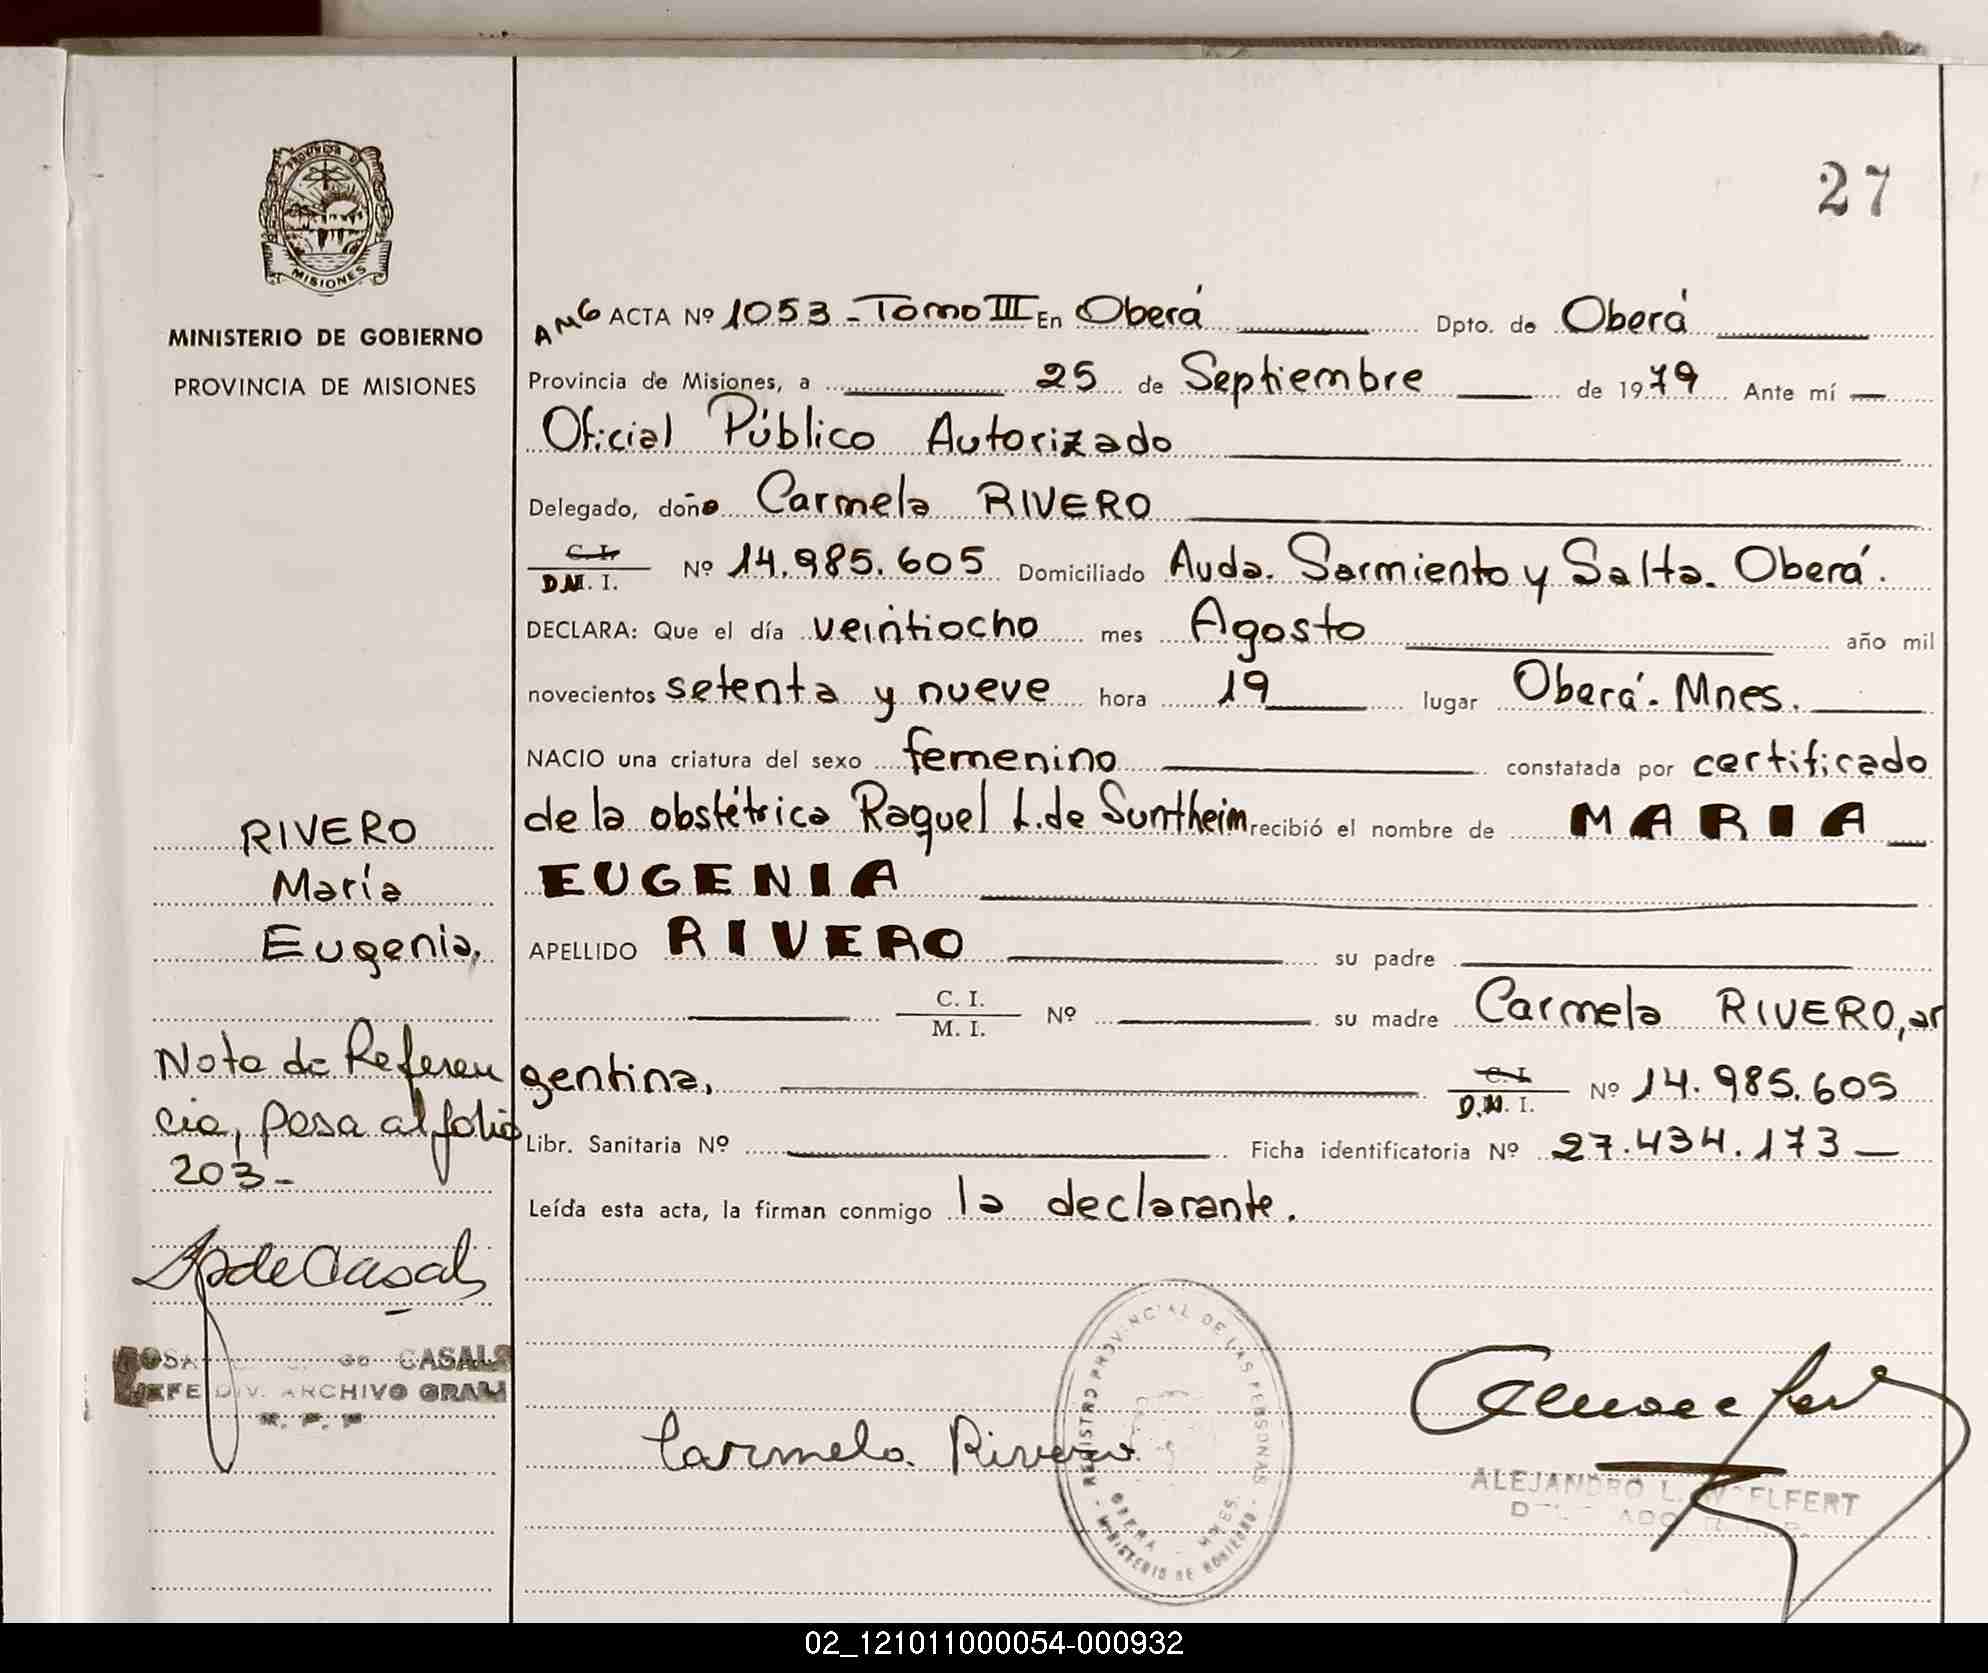 27
PROVINCIA DE
MISIONES
MINISTERIO DE GOBIERNO
PROVINCIA DE MISIONES
AMG ACTA Nº 1053 - Tomo III En Oberá Dpto. de Oberá
Provincia de Misiones, a 25 de Septiembre de 1979 Ante mí
Oficial Público Autorizado
Delegado, doña Carmela RIVERO
C. I.
D.M. I. Nº 14.985.605 Domiciliado Avda. Sarmiento y Salta. Oberá.
DECLARA: Que el día veintiocho mes Agosto año mil
novecientos setenta y nueve hora 19 lugar Oberá. Mnes.
NACIO una criatura del sexo femenino constatada por certificado
de la obstétrica Raquel L. de Suntheim recibió el nombre de MARIA
EUGENIA
APELLIDO RIVERO su padre
C. I.
M. I. Nº su madre Carmela RIVERO, ar
gentina, C. I.
D.N. I. Nº 14.985.605
Libr. Sanitaria Nº Ficha identificatoria Nº 27.434.173
Leída esta acta, la firman conmigo la declarante.
RIVERO
María
Eugenia.
Nota de Referen
cia, pasa al folio
203-
de Casals
ROSA de CASALS
JEFE DIV. ARCHIVO GRAL
R. P. P
Carmela Rivero
REGISTRO PROVINCIAL DE LAS PERSONAS
OBERA - MNES.
MINISTERIO DE GOBIERNO
ALEJANDRO L. WOELFERT
02_121011000054-000932